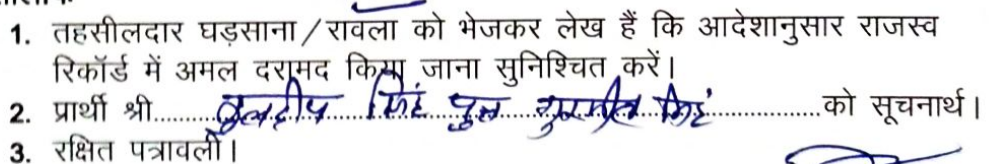 1. तहसीलदार घड़साना/रावला को भेजकर लेख हैं कि आदेशानुसार राजस्व
रिकॉर्ड में अमल दरामद किया जाना सुनिश्चित करें।
2. प्रार्थी श्री.....कुलदीप सिंह पुत्र गुरमीत सिंह.....को सूचनार्थ।
3. रक्षित पत्रावली।